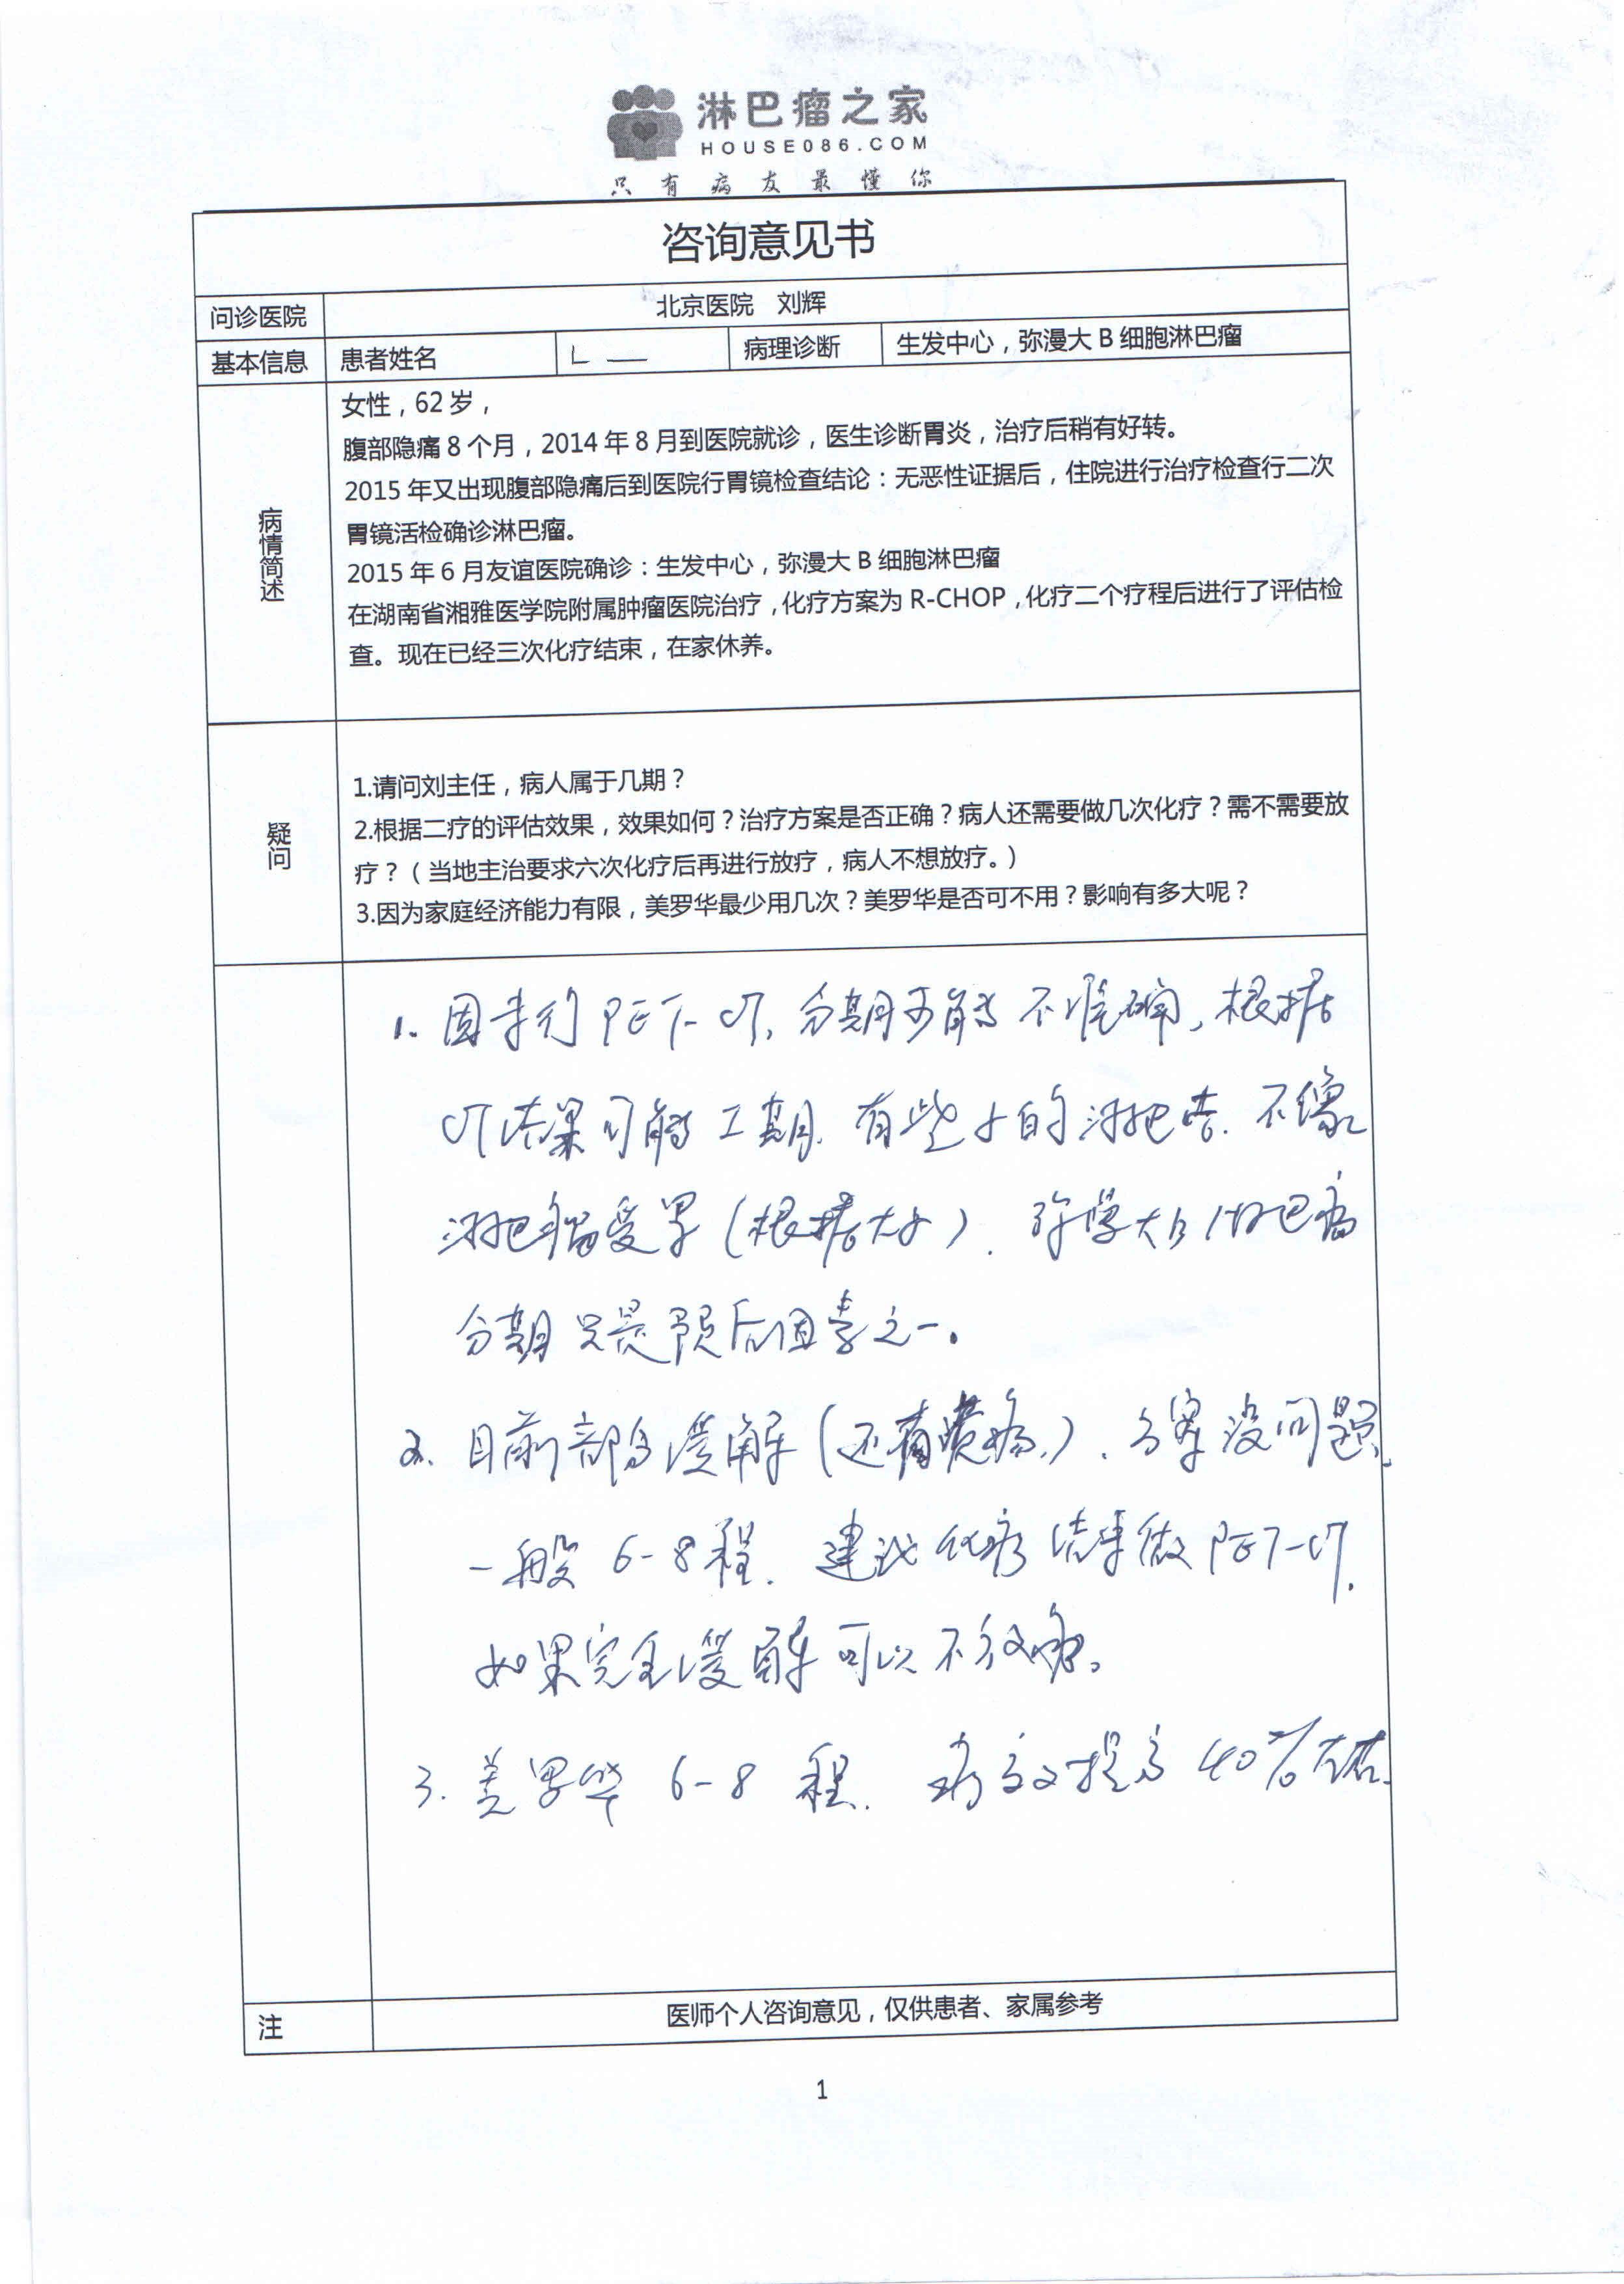 淋巴瘤之家
HOUSE086.COM
只有病友最懂你
咨询意见书
问诊医院 北京医院 刘辉
基本信息 患者姓名 L — 病理诊断 生发中心，弥漫大 B 细胞淋巴瘤
病情简述
女性，62 岁，
腹部隐痛 8 个月，2014 年 8 月到医院就诊，医生诊断胃炎，治疗后稍有好转。
2015 年又出现腹部隐痛后到医院行胃镜检查结论：无恶性证据后，住院进行治疗检查行二次
胃镜活检确诊淋巴瘤。
2015 年 6 月友谊医院确诊：生发中心，弥漫大 B 细胞淋巴瘤
在湖南省湘雅医学院附属肿瘤医院治疗，化疗方案为 R-CHOP，化疗二个疗程后进行了评估检
查。现在已经三次化疗结束，在家休养。
疑问
1.请问刘主任，病人属于几期？
2.根据二疗的评估效果，效果如何？治疗方案是否正确？病人还需要做几次化疗？需不需要放
疗？（当地主治要求六次化疗后再进行放疗，病人不想放疗。）
3.因为家庭经济能力有限，美罗华最少用几次？美罗华是否可不用？影响有多大呢？
1. 因未行 PET-CT, 分期可能不准确, 根据
CT结果可能 I 期. 有些小的淋巴结. 不像
淋巴瘤受累 (根据大小). 弥漫大B淋巴瘤
分期只是预后因素之一。
2. 目前部分缓解 (还有溃疡). 方案没问题.
一般 6-8 程. 建议化疗结束做 PET-CT.
如果完全缓解可以不放疗。
3. 美罗华 6-8 程. 疗效提高 40% 左右.
注 医师个人咨询意见，仅供患者、家属参考
1